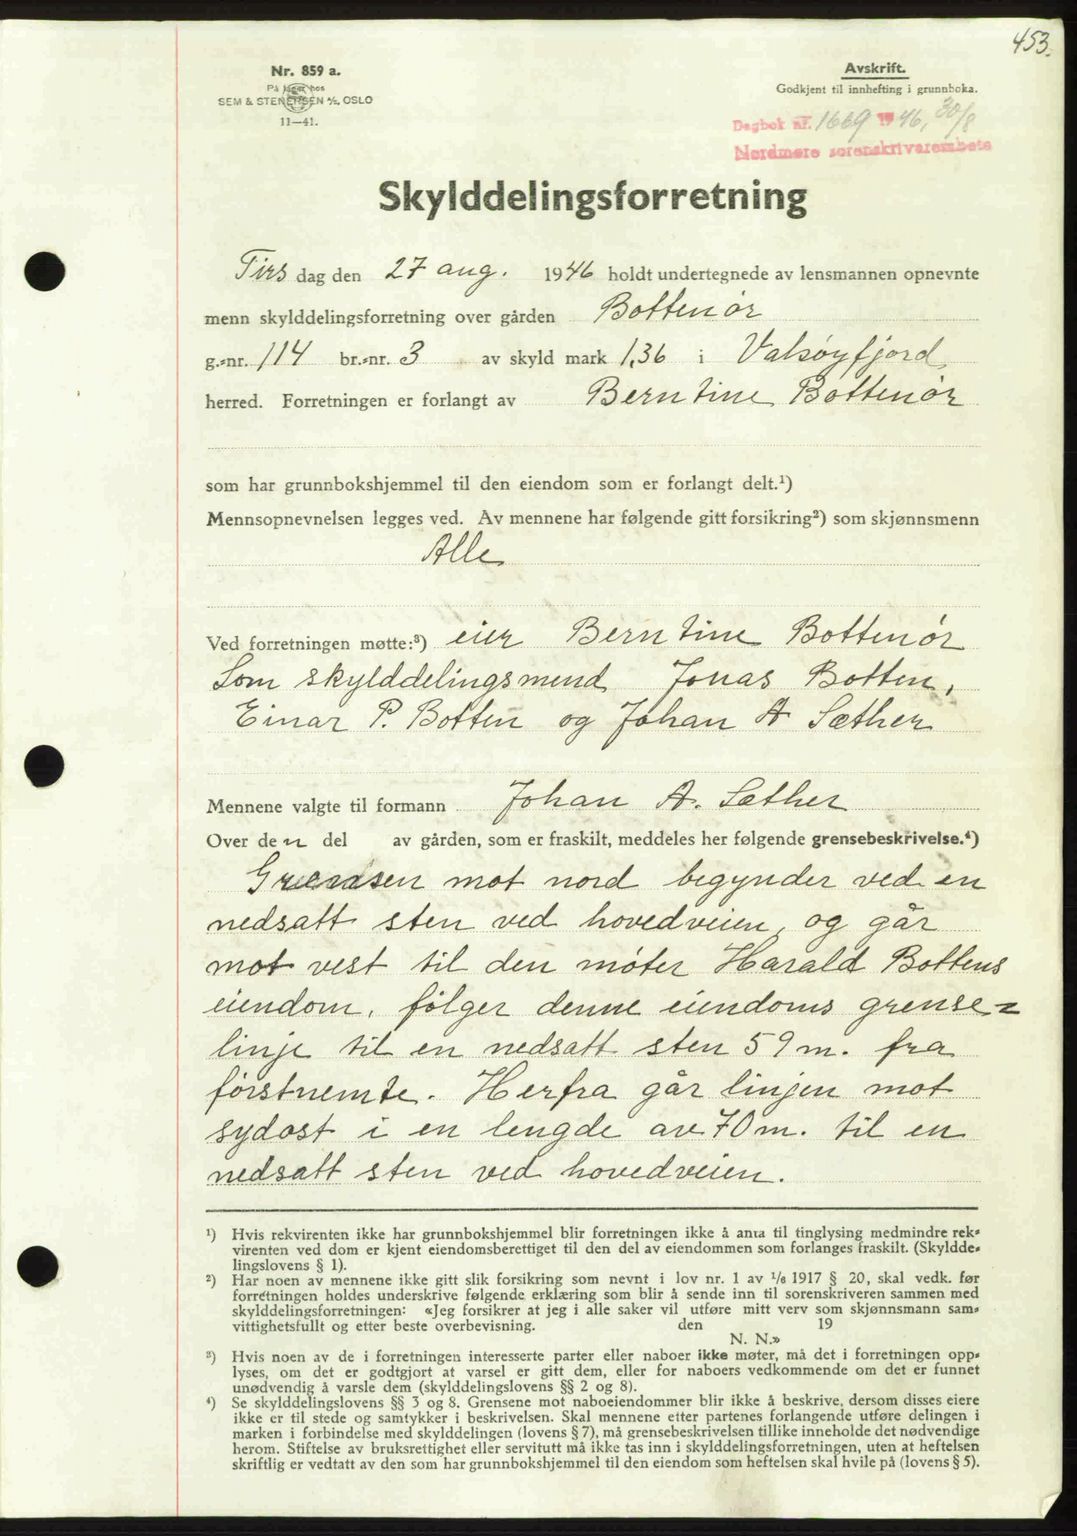 453.
Nr. 859 a.
På lager hos
SEM & STENERSEN A/S, OSLO
11—41.
Avskrift.
Godkjent til innhefting i grunnboka.
Dagbok nr. 1669 1946, 30/8
Nordmøre sorenskrivarembete
Skylddelingsforretning
Tirsdag den 27 aug. 1946 holdt undertegnede av lensmannen opnevnte
menn skylddelingsforretning over gården Bottenör
g.-nr. 114 br.-nr. 3 av skyld mark 1,36 i Valsøyfjord
herred. Forretningen er forlangt av Berntine Bottenör
som har grunnbokshjemmel til den eiendom som er forlangt delt.¹)
Mennsopnevnelsen legges ved. Av mennene har følgende gitt forsikring²) som skjønnsmenn
Alle
Ved forretningen møtte:³) eier Berntine Bottenör
Som skylddelingsmend Jonas Botten,
Einar P. Botten og Johan A Sæther
Mennene valgte til formann Johan A. Sæther
Over den del av gården, som er fraskilt, meddeles her følgende grensebeskrivelse.⁴)
Grensen mot nord begynder ved en
nedsatt sten ved hovedveien, og går
mot vest til den möter Harald Bottens
eiendom, fölger denne eiendoms grense-
linje til en nedsatt sten 59 m. fra
förstnemte. Herfra går linjen mot
sydost i en lengde av 70 m. til en
nedsatt sten ved hovedveien.
¹) Hvis rekvirenten ikke har grunnbokshjemmel blir forretningen ikke å anta til tinglysing medmindre rek-
virenten ved dom er kjent eiendomsberettiget til den del av eiendommen som forlanges fraskilt. (Skyldde-
lingslovens § 1).
²) Har noen av mennene ikke gitt slik forsikring som nevnt i lov nr. 1 av 1/6 1917 § 20, skal vedk. før
forretningen holdes underskrive følgende erklæring som blir å sende inn til sorenskriveren sammen med
skylddelingsforretningen: «Jeg forsikrer at jeg i alle saker vil utføre mitt verv som skjønnsmann sam-
vittighetsfullt og etter beste overbevisning. den 19
N. N.»
³) Hvis noen av de i forretningen interesserte parter eller naboer ikke møter, må det i forretningen opp-
lyses, om det er godtgjort at varsel er gitt dem, eller for naboers vedkommende om det er funnet
unødvendig å varsle dem (skylddelingslovens §§ 2 og 8).
⁴) Se skylddelingslovens §§ 3 og 8. Grensene mot naboeiendommer blir ikke å beskrive, dersom disses eiere
ikke er til stede og samtykker i beskrivelsen. Skal mennene etter partenes forlangende utføre delingen i
marken i forbindelse med skylddelingen (lovens § 7), må grensebeskrivelsen tillike inneholde det nødvendige
herom. Stiftelse av bruksrettighet eller servitutt må ikke tas inn i skylddelingsforretningen, uten at heftelsen
skriftlig er vedtatt av den som har grunnbokshjemmel til den eiendom som heftelsen skal hvile på (lovens § 5).